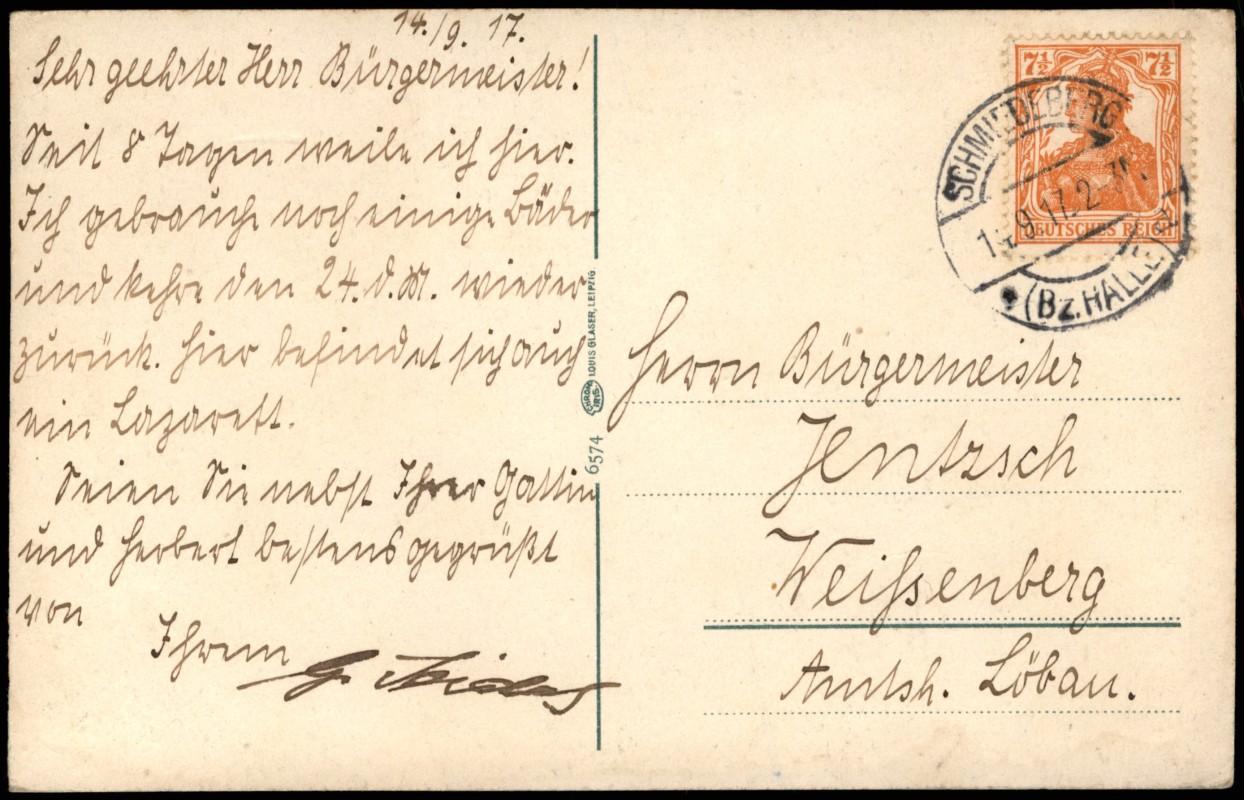 14./9. 17.
Sehr geehrter Herr Bürgermeister!
Seit 8 Tagen weile ich hier.
Ich gebrauche noch einige Bäder
und kehre den 24. d. M. wieder
zurück. Hier befindet sich auch
ein Lazarett.
Seien Sie nebst Ihrer Gattin
und Herbert bestens gegrüßt
von
Ihrem
G.
6574
CHROM
IRIS
LOUIS GLASER, LEIPZIG.
7½ 7½
DEUTSCHES REICH
SCHMIEDEBERG
9.17.2-3
(Bz. HALLE)
Herrn Bürgermeister
Jentzsch
Weißenberg
Amtsh. Löbau.